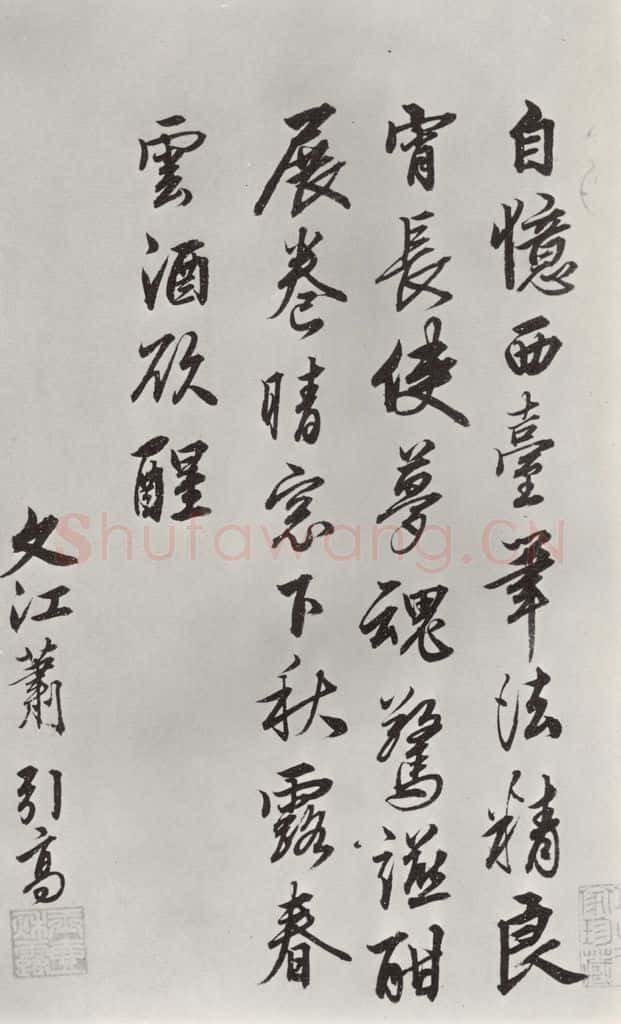 自憶西臺筆法精良
宵長使夢魂驚譺酣
展卷晴窓下秋露春
雲酒欣醒
文江蕭引高
Shufawang.CN